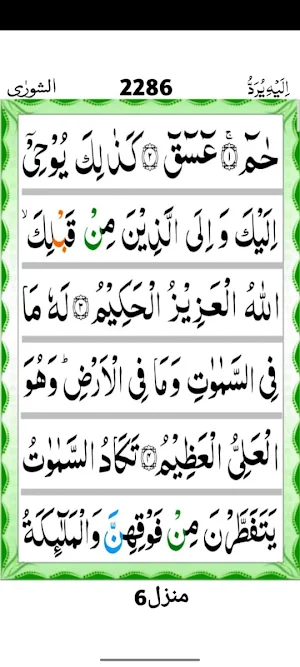 الشورٰى 2286 اِلَيْهِ يُرَدُّ
حٰمٓ ۚ‏﴿۱﴾ عٓسٓقٓ ‏﴿۲﴾ كَذٰلِكَ يُوْحِىْۤ
اِلَيْكَ وَ اِلَى الَّذِيْنَ مِنْ قَبْلِكَ ۙ
اللّٰهُ الْعَزِيْزُ الْحَكِيْمُ ‏﴿۳﴾ لَهٗ مَا
فِى السَّمٰوٰتِ وَمَا فِى الْاَرْضِ‌ؕ وَهُوَ
الْعَلِىُّ الْعَظِيْمُ ‏﴿۴﴾ تَكَادُ السَّمٰوٰتُ
يَتَفَطَّرْنَ مِنْ فَوْقِهِنَّ‌ وَالْمَلٰٓٮِٕكَةُ
منزل6